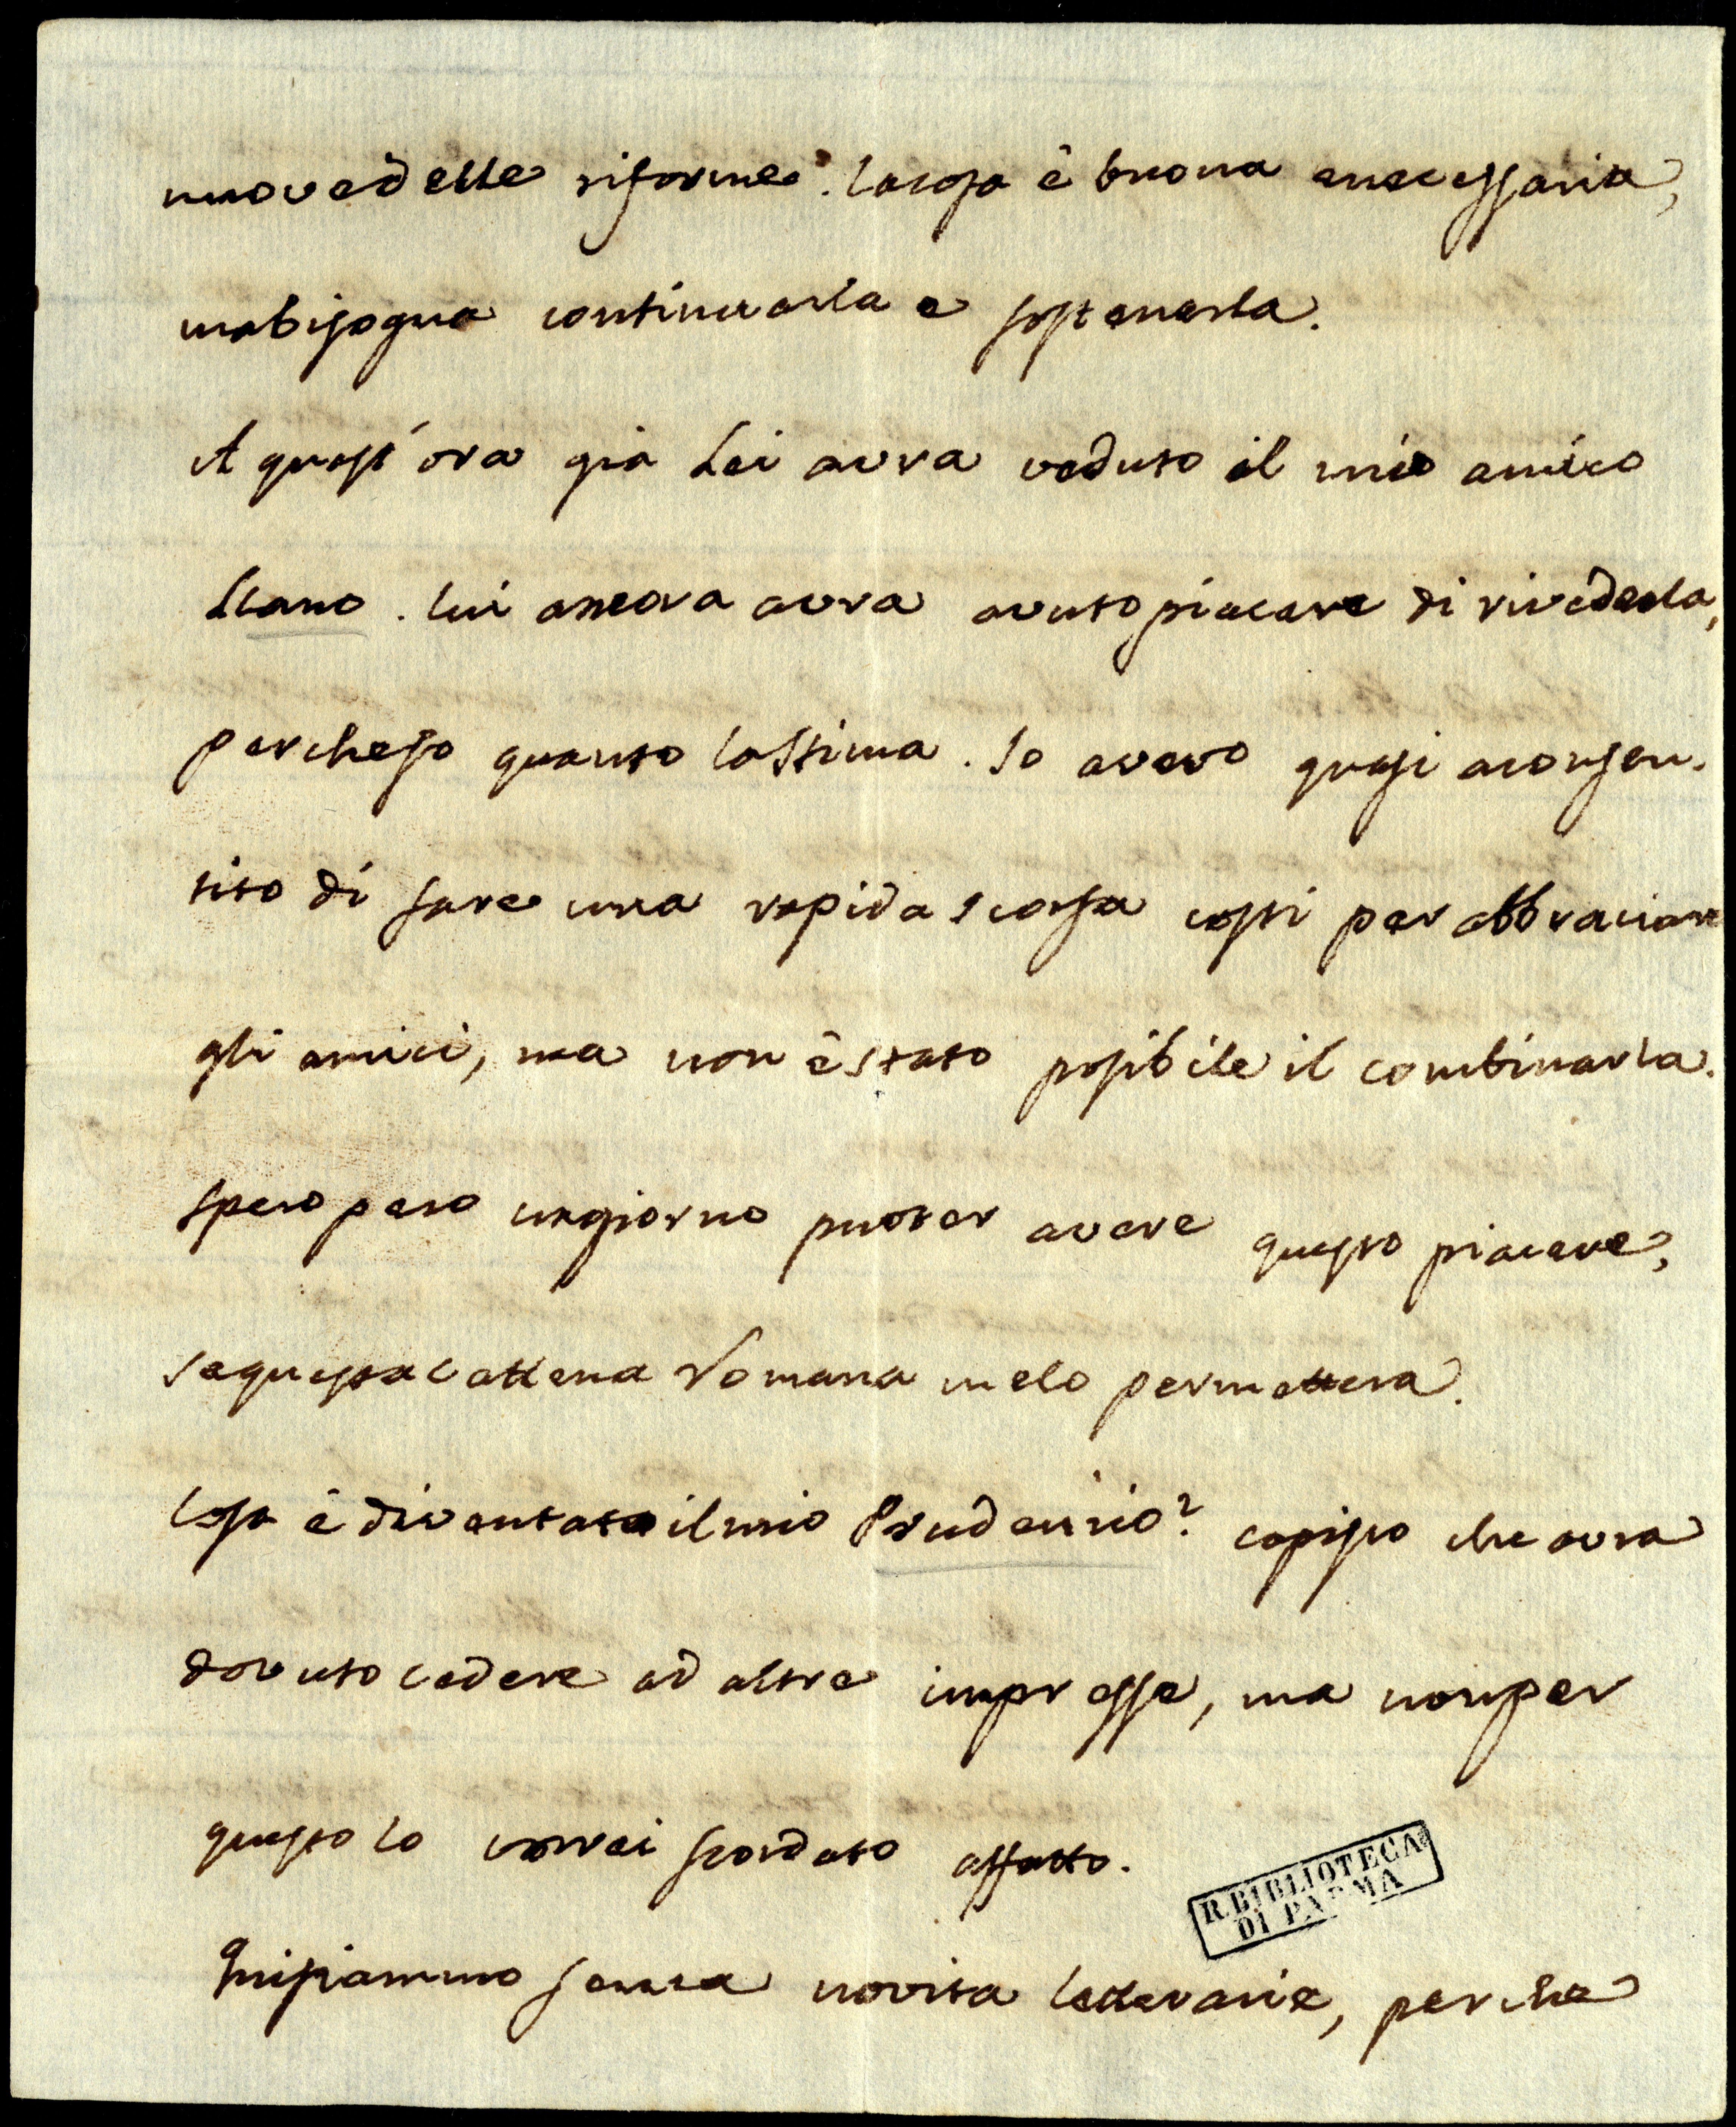 nuove delle riforme. la cosa è buona e necessaria,
ma bisogna continuarla e sostenerla.
A quest'ora già Lei avra veduto il mio amico
Llano. lui ancora avra avuto piacere di rivederla,
perche so quanto la stima. Io avevo quasi aconsen-
tito di fare una rapida scorsa costi per abbraciare
gli amici, ma non è stato posibile il combinarla.
spero pero un giorno puoter avere questo piacere,
se questa cattena Romana me lo permettera.
Cosa è diventato il mio Prudenzio? capisco che avra
dovuto cedere ad altre impresse, ma non per
questo lo vorrei scordato affatto.
R. BIBLIOTECA
DI PARMA
Qui siammo senza novita letterarie, perche